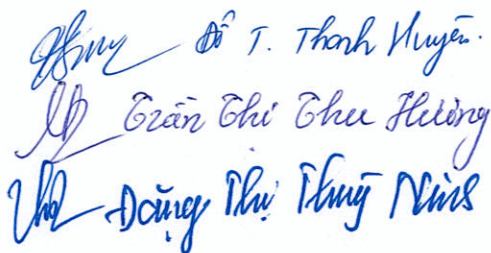 Đỗ T. Thanh Huyền.
Trần Thị Thu Hường
Đặng Thị Thuỳ Ninh